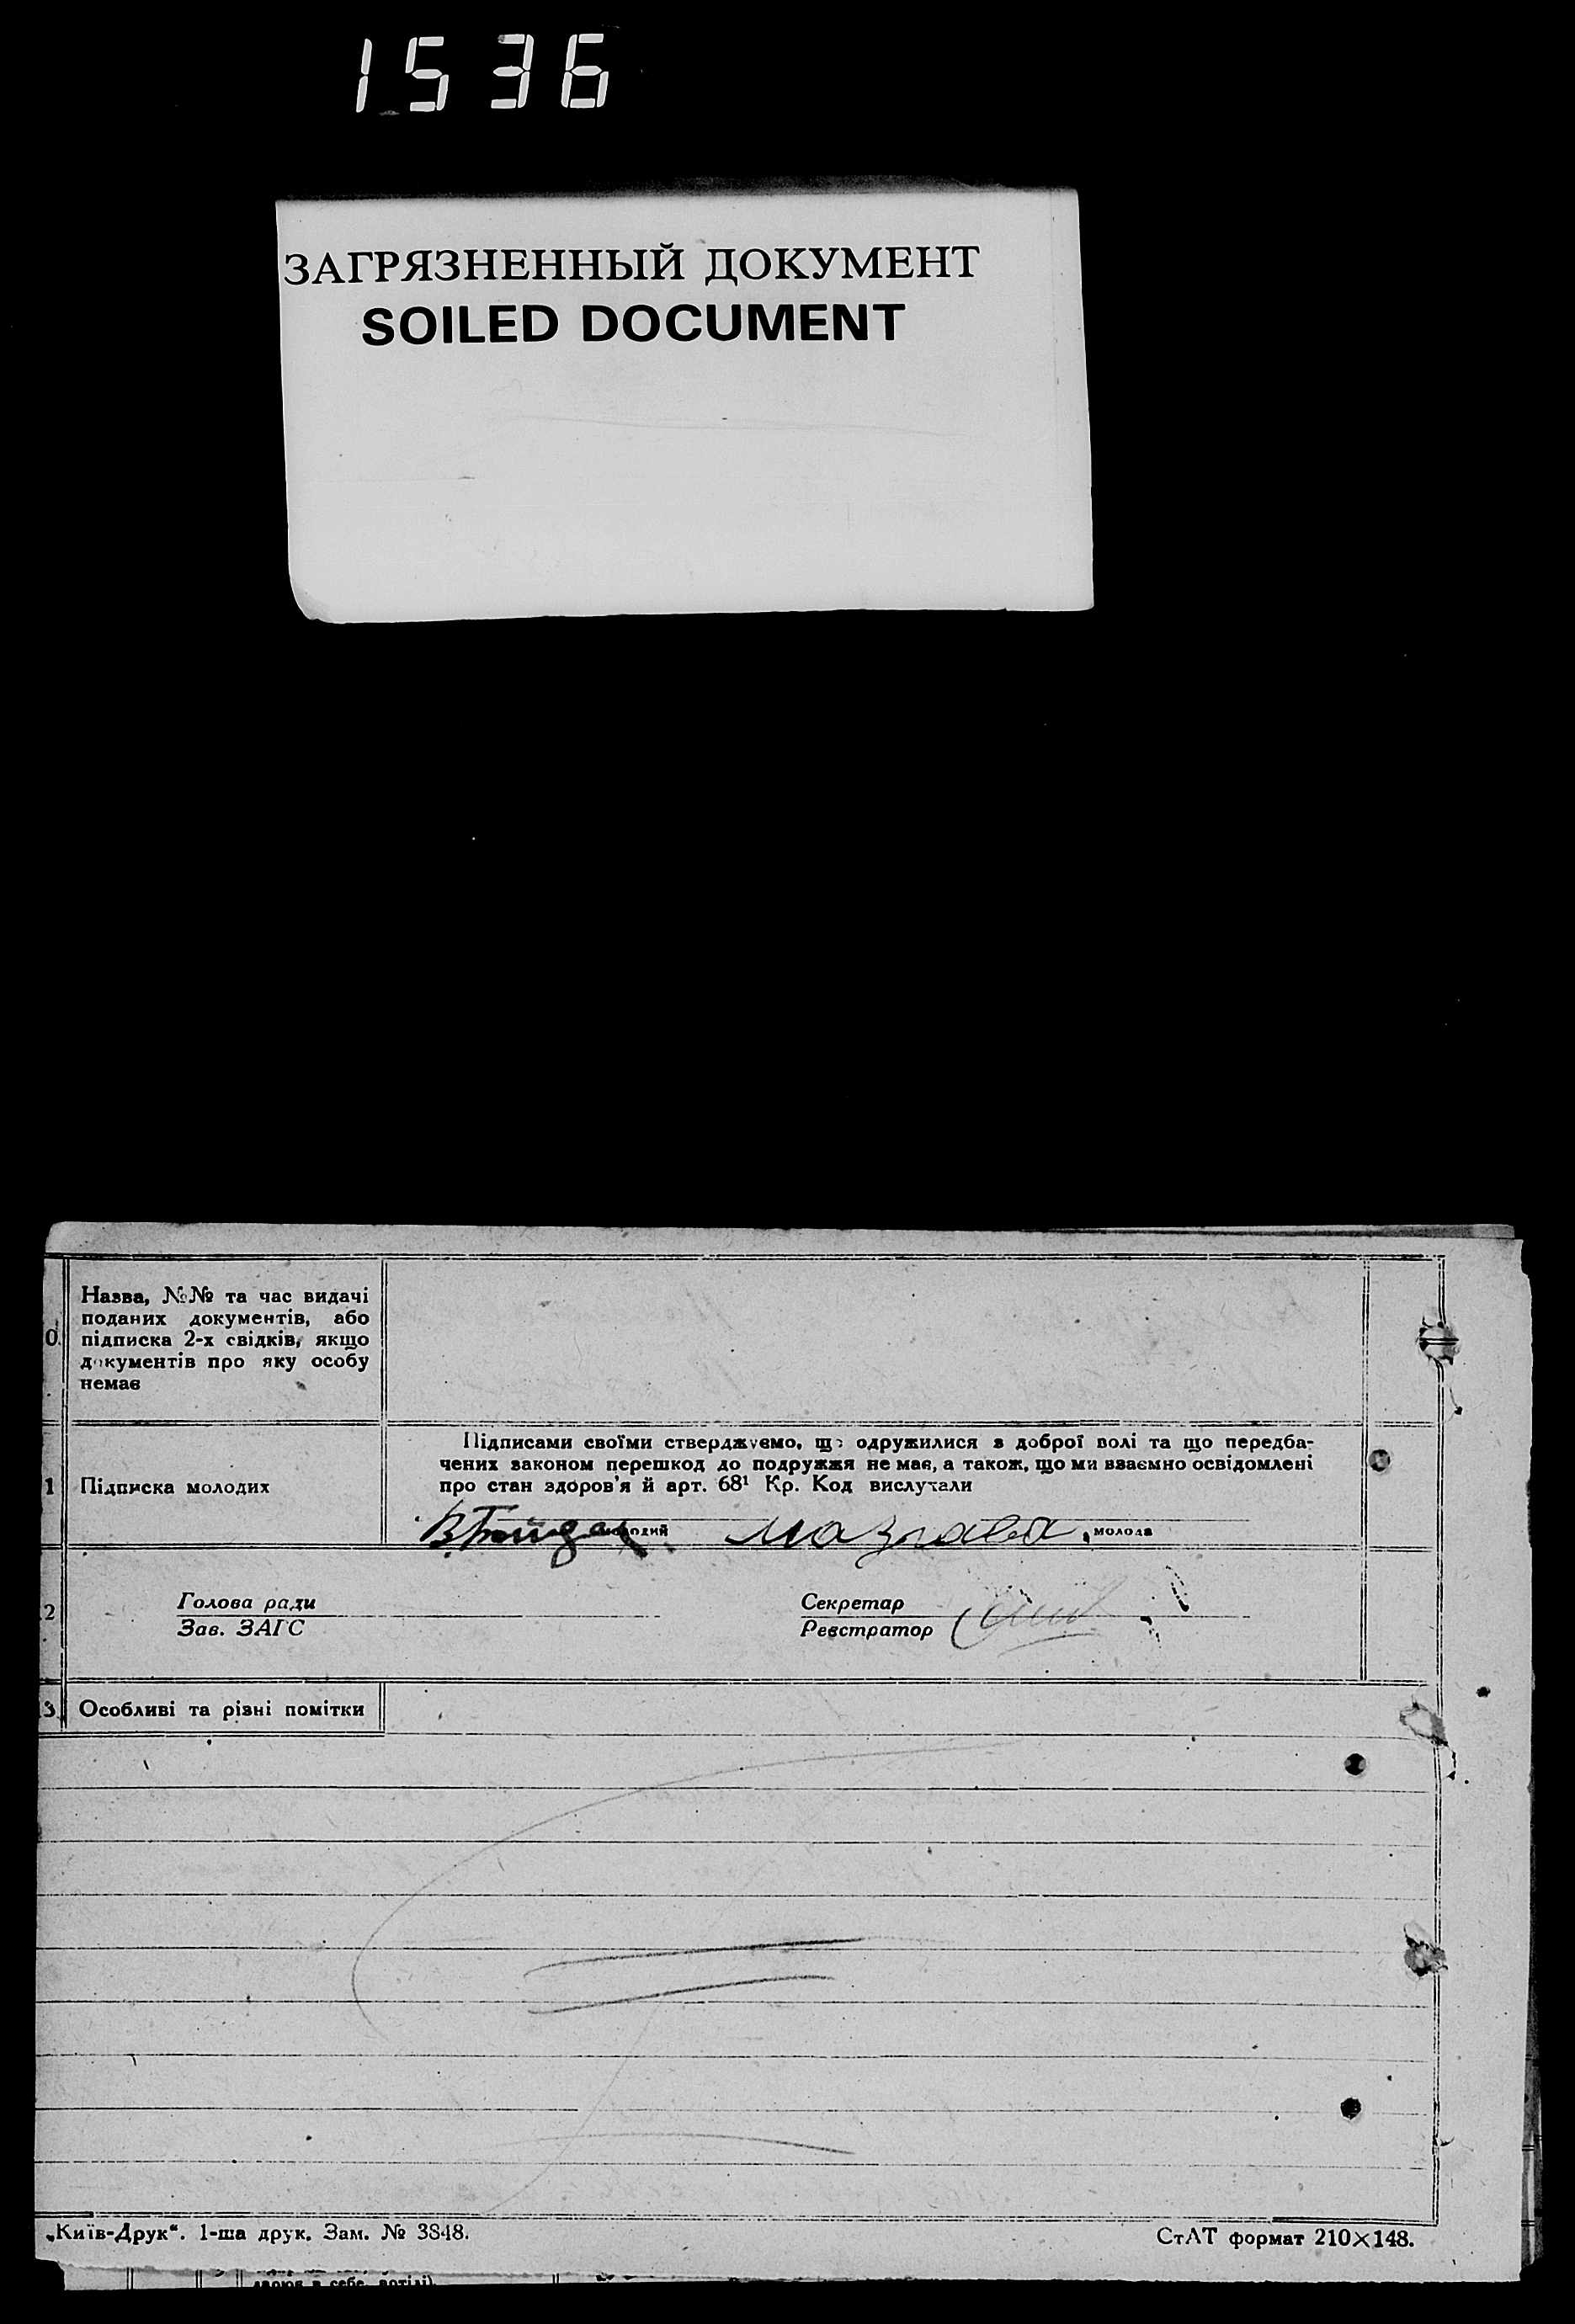 1536
ЗАГРЯЗНЕННЫЙ ДОКУМЕНТ
SOILED DOCUMENT
Назва, №№ та час видачі
поданих документів, або
0. підписка 2-х свідків, якщо
документів про яку особу
немає
Підписами своїми стверджуємо, що одружилися з доброї волі та що передба-
чених законом перешкод до подружжя не має, а також, що ми взаємно освідомлені
1 Підписка молодих про стан здоров'я й арт. 68¹ Кр. Код вислухали
молодий молода
Голова ради Секретар
2
Зав. ЗАГС Реєстратор
3. Особливі та різні помітки
„Київ-Друк“. 1-ша друк. Зам. № 3848. СтАТ формат 210×148.
в себе